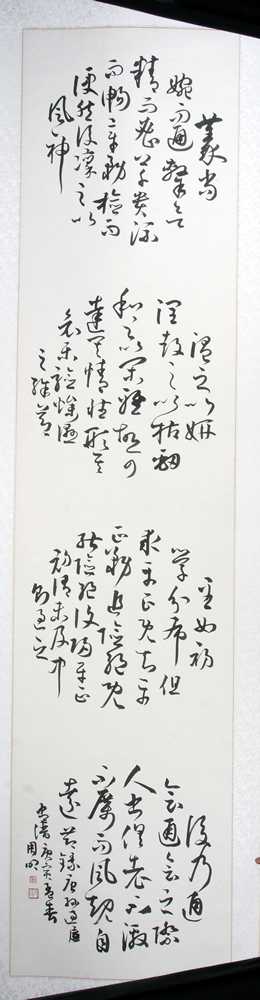 篆尚
婉而通隸欲
精而密草貴流
而暢章務檢而
便然後凜之以
風神
溫之以妍
潤鼓之以枯勁
和之以閑雅故可
達其情性形其
哀樂驗燥濕
之殊節
至如初
學分布但
求平正既知平
正務追險絕既
能險絕復歸平正
初謂未及中
則過之
後乃通
會通會之際
人書俱老不激
不厲而風規自
遠節錄唐孫過庭
書譜庚寅春